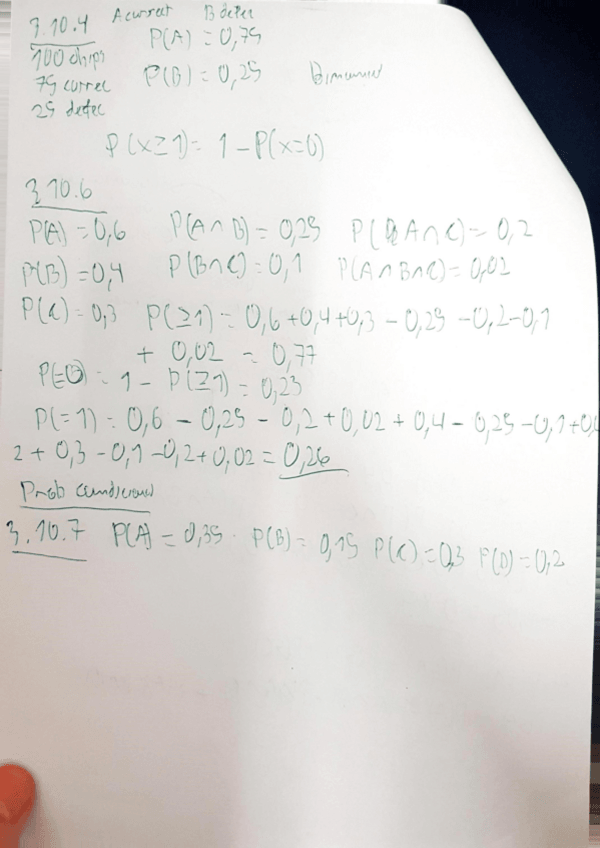 3.10.4 A correct B defec
100 chips P(A) = 0,75
75 correc P(B) = 0,25 Binomial
25 defec
P(x≥1) = 1 - P(x=0)
3.10.6
P(A) = 0,6 P(A∩B) = 0,25 P(A∩C) = 0,2
P(B) = 0,4 P(B∩C) = 0,1 P(A∩B∩C) = 0,02
P(C) = 0,3 P(≥1) = 0,6+0,4+0,3 - 0,25 - 0,2 - 0,1
+ 0,02 = 0,77
P(=0) = 1 - P(≥1) = 0,23
P(=1) = 0,6 - 0,25 - 0,2 + 0,02 + 0,4 - 0,25 - 0,1 + 0,0
2 + 0,3 - 0,1 - 0,2 + 0,02 = 0,26
Prob condicional
3.10.7 P(A) = 0,35 P(B) = 0,15 P(C) = 0,3 P(D) = 0,2